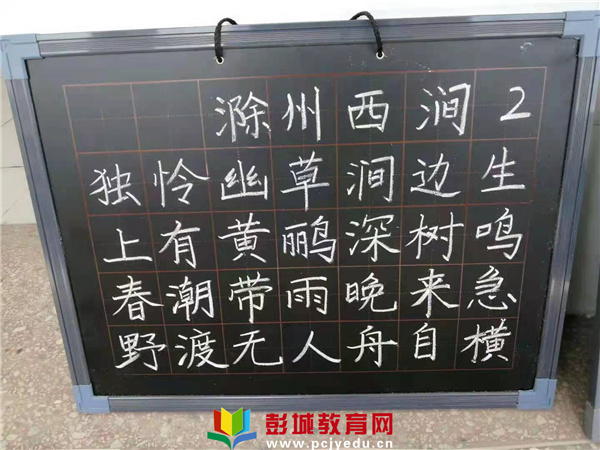 滁州西涧 2
独怜幽草涧边生
上有黄鹂深树鸣
春潮带雨晚来急
野渡无人舟自横
彭城教育网
www.pcjyedu.cn